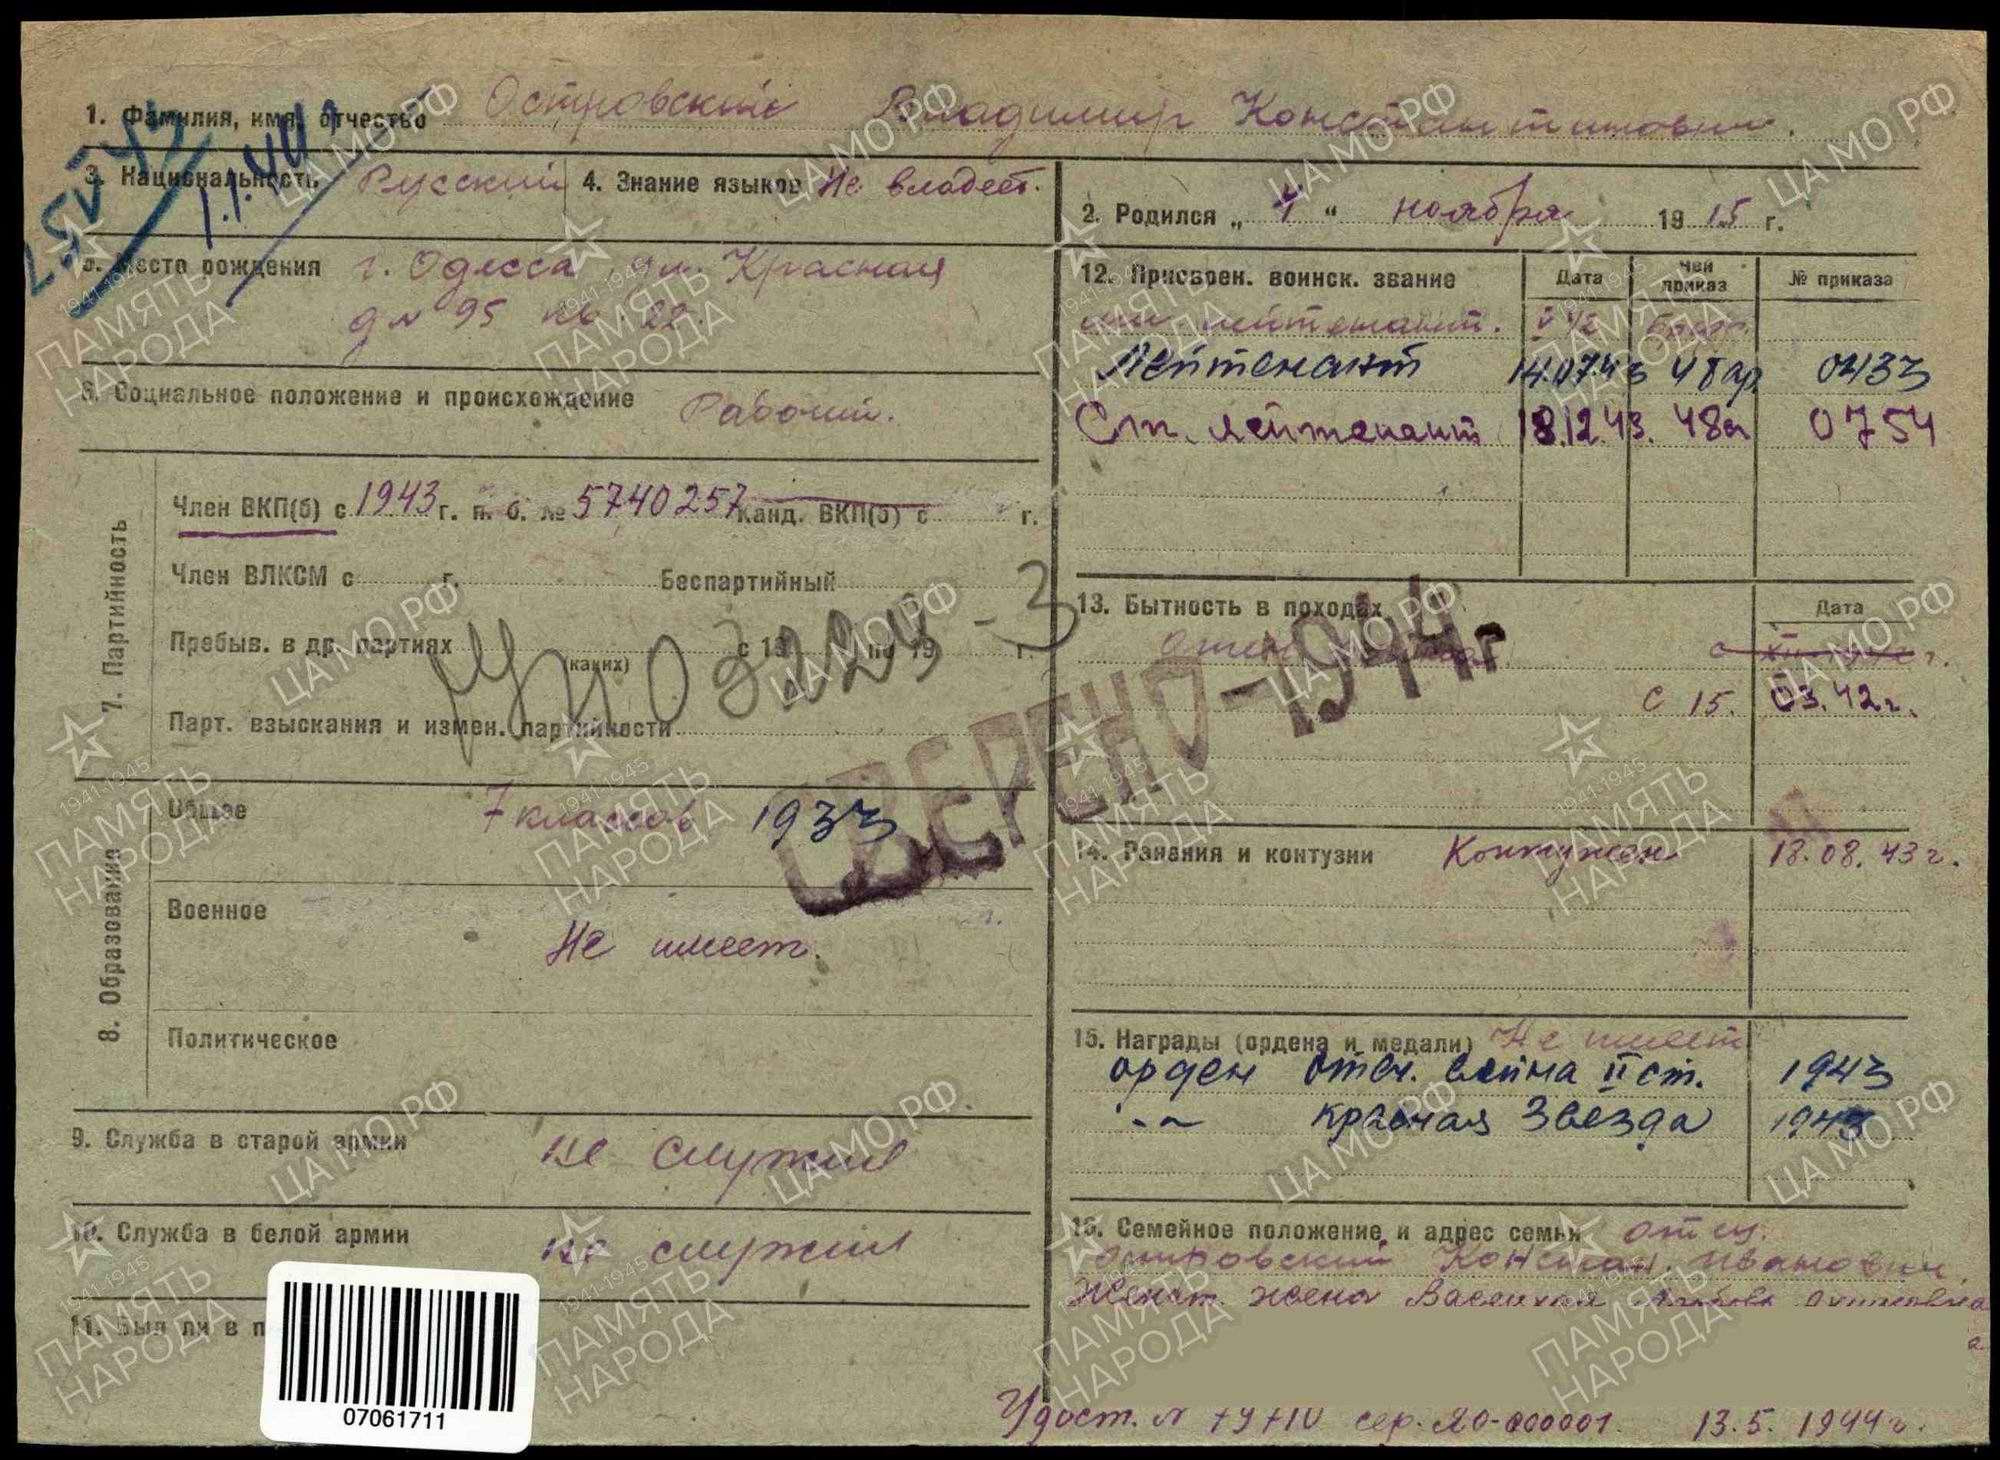 1. Фамилия, имя, отчество Островский Владимир Константинович.
3. Национальность Русский 4. Знание языков Не владеет.
2. Родился „4“ ноября 1915 г.
5. Место рождения г. Одесса ул. Красная
д № 95 кв 22.
6. Социальное положение и происхождение Рабочий.
7. Партийность
Член ВКП(б) с 1943 г. п. б. № 5740257 Канд. ВКП(б) с г.
Член ВЛКСМ с г. Беспартийный
Пребыв. в др. партиях (каких) с 19 по 19 г.
Парт. взыскания и измен. партийности
8. Образование
Общее 7 классов 1933
Военное Не имеет.
Политическое
9. Служба в старой армии не служил
10. Служба в белой армии не служил
11. Был ли в п
07061711
12. Присвоен. воинск. звание Дата Чей приказ № приказа
мл. лейтенант.
Лейтенант 14.07.43 48 ар 0433
Ст. лейтенант 18.12.43. 48а 0754
13. Бытность в походах Дата
с 15. 03.42г.
СВЕРЕНО-1944г
14. Ранения и контузии Контужен 18.08.43г.
15. Награды (ордена и медали) Не имеет
орден отеч. война II ст. 1943
-"- красная звезда 1943
16. Семейное положение и адрес семьи отец
Островский Констан. Иванович.
Женат. жена
Удост. № сер. ЯО-000001. 13.5.1944г.
1.1.44
ЦА МО РФ
1941-1945
ПАМЯТЬ
НАРОДА